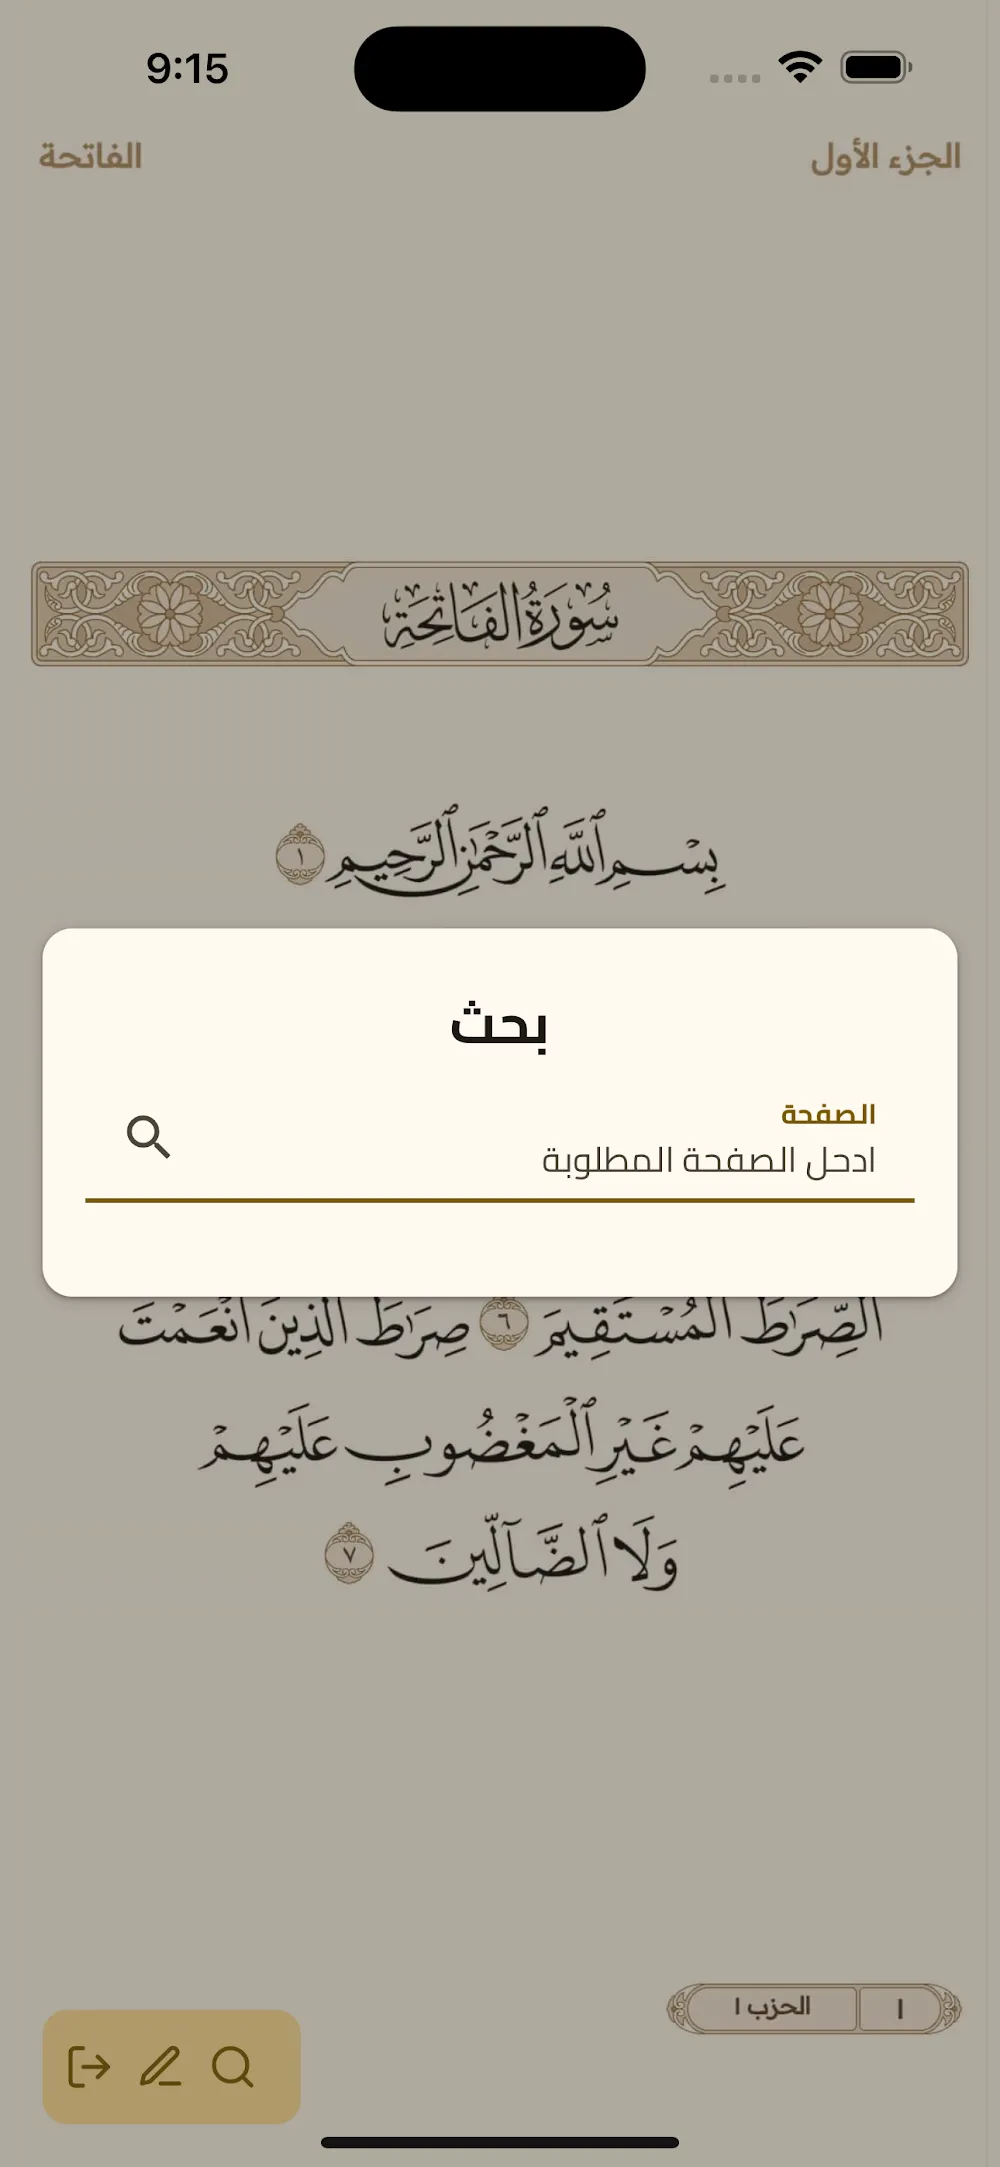 9:15
الجزء الأول
الفاتحة
سُورَةُ الفَاتِحَةِ
بِسْمِ ٱللَّهِ ٱلرَّحْمَٰنِ ٱلرَّحِيمِ ١
بحث
الصفحة
ادحل الصفحة المطلوبة
ٱلصِّرَٰطَ ٱلْمُسْتَقِيمَ ٦ صِرَٰطَ ٱلَّذِينَ أَنْعَمْتَ
عَلَيْهِمْ غَيْرِ ٱلْمَغْضُوبِ عَلَيْهِمْ
وَلَا ٱلضَّآلِّينَ ٧
١
الحزب ١